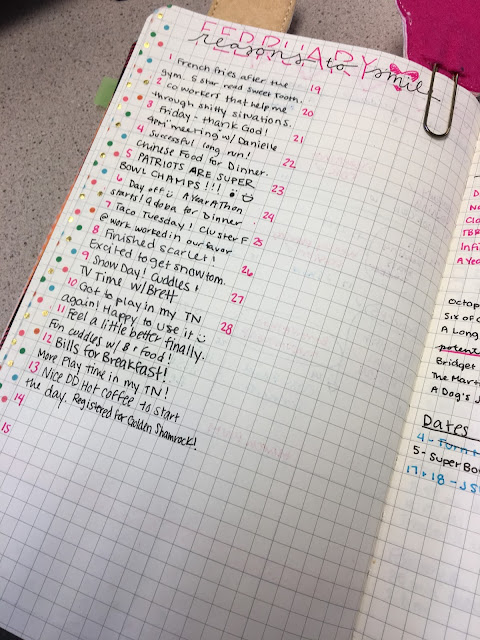 FEBRUARY
reasons to smile
1 French fries after the
gym. 5 star read sweet tooth.
2 co workers that help me
through shitty situations.
3 Friday - thank God!
4pm "meeting" w/ Danielle
4 Successful long run!
Chinese Food for Dinner.
5 PATRIOTS ARE SUPER
BOWL CHAMPS!!!
6 Day off A Year A Thon
starts! Qdoba for Dinner
7 Taco Tuesday! Cluster F
@ work worked in our favor
8 Finished Scarlet!
Excited to get snow tom.
9 Snow Day! Cuddles +
TV Time w/ Brett
10 Got to play in my TN
again! Happy to use it
11 Feel a little better finally.
Fun cuddles w/ B + food!
12 Bills for Breakfast!
More play time in my TN!
13 Nice DD Hot coffee to start
the day. Registered for Golden Shamrock!
14
15
19
20
21
22
23
24
25
26
27
28
D
N
Clo
TBR
Infi
A Yea
Octop
Six of C
A Long
poten
Bridget
The Mart
A Dog's J
Dates
4 - Turn
5 - Super Bo
17 + 18 - JS